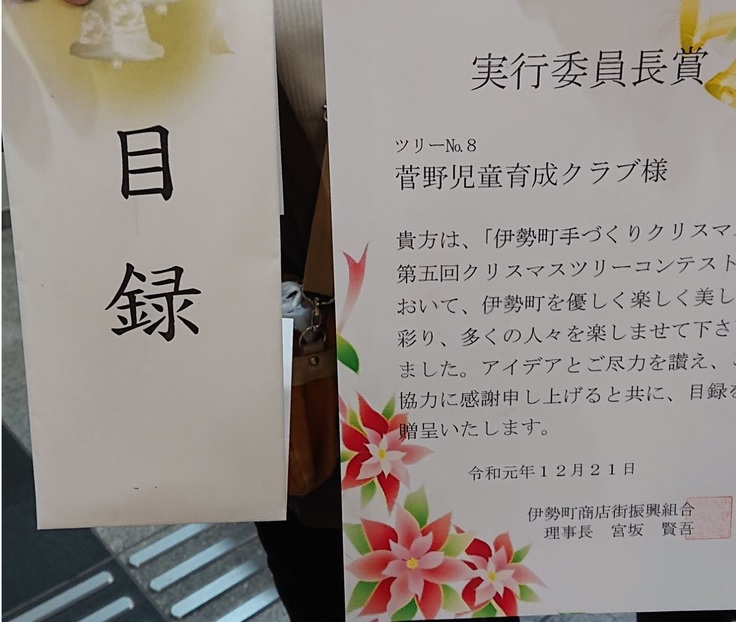 目録
実行委員長賞
ツリー№8
菅野児童育成クラブ様
貴方は、「伊勢町手づくりクリスマ
第五回クリスマスツリーコンテスト
おいて、伊勢町を優しく楽しく美し
彩り、多くの人々を楽しませて下さ
ました。アイデアとご尽力を讃え、
協力に感謝申し上げると共に、目録を
贈呈いたします。
令和元年12月21日
伊勢町商店街振興組合
理事長 宮坂 賢吾